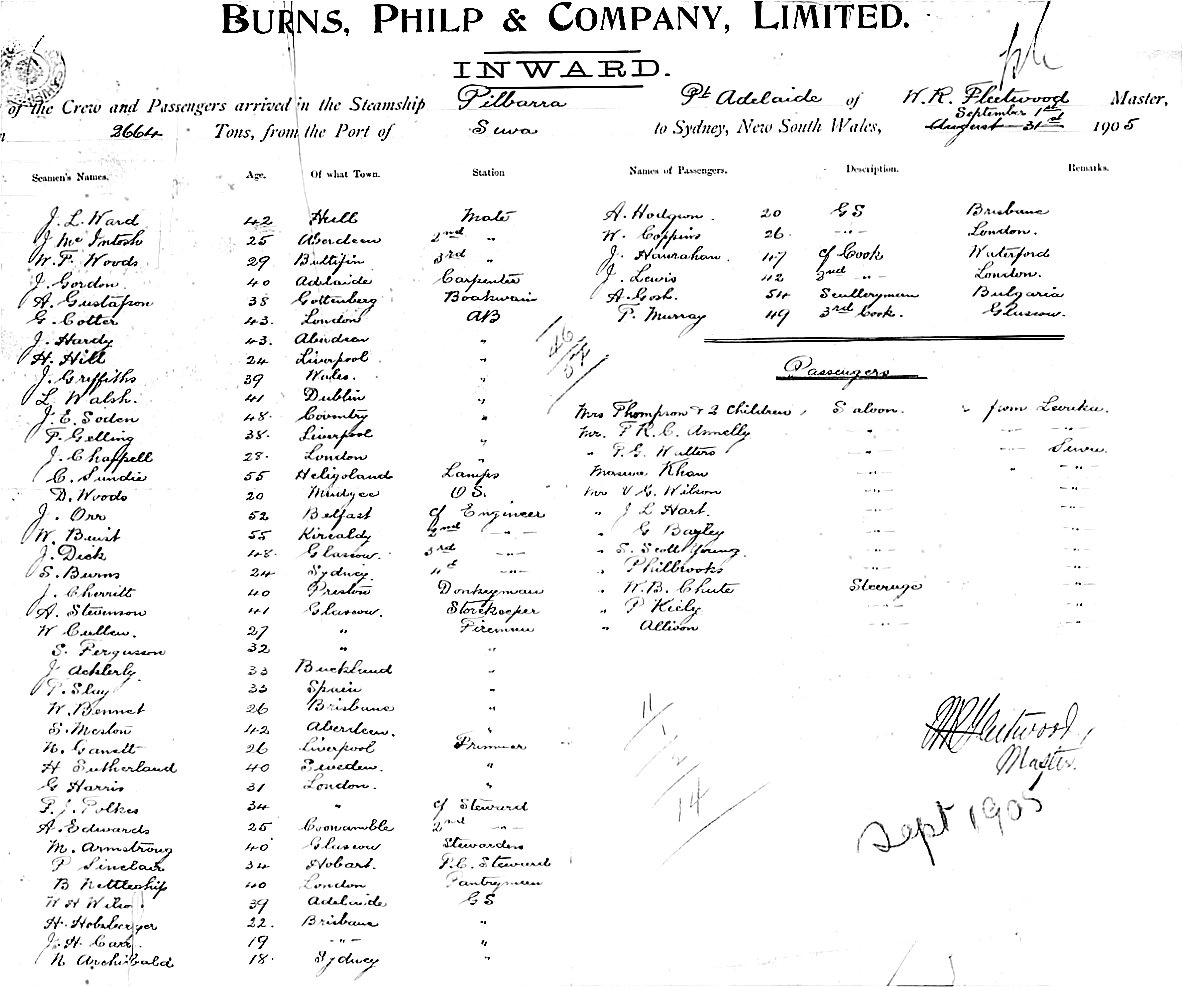 BURNS, PHILP & COMPANY, LIMITED.
INWARD.
of the Crew and Passengers arrived in the Steamship Pilbarra Pt Adelaide of W. R. Fleetwood Master,
2664 Tons, from the Port of Suva to Sydney, New South Wales, September 1st August 31st 1905
Seamen's Names. Age. Of what Town. Station Names of Passengers. Description. Remarks.
J. L. Ward 42 Hull Mate A. Hodgson. 20 GS Brisbane
J Mc Intosh 25 Aberdeen 2nd " W. Coppins 26. -"- London.
W. F. Woods 29 3rd " J. Hanrahan. 47 Cf Cook Waterford
J. Gordon 40 Adelaide Carpenter J. Lewis 42 2nd -"- London.
A. Gustafson 38 Gottenberg Boatswain A. Gosh. 54 Sculleryman Bulgaria
G. Cotter 43. London AB P. Murray 49 3rd Cook. Glasgow.
J. Hardy 43. Aberdeen "
H. Hill 24 Liverpool "
J. Griffiths 39 Wales. "
L. Walsh. 41 Dublin "
J. E. Soden 48. Coventry "
F. Gelling 38. Liverpool "
J. Chappell 28. London "
C. Sundie 55 Heligoland Lamps
D. Woods 20 Mudgee OS.
J. Orr 52 Belfast Cf Engineer
W. Buist 55 Kircaldy 2nd -"-
J. Dick 48. Glasgow. 3rd -"-
S. Burns 24 Sydney. 4th -"-
J. Cherritt 40 Preston Donkeyman
A. Stevenson 41 Glasgow. Storekeeper
W Cullen. 27 " Fireman
S. Ferguson 32 " "
J Ackterly. 33 Buckland "
P. Slay 33 Spain "
W. Bennet 26 Brisbane "
S. Meston 42 Aberdeen. "
N. Garrett 26 Liverpool Trimmer
H Sutherland 40 Sweden. "
G Harris 31 London. "
F. J. Polkes 34 " Cf Steward
A. Edwards 25 Coonamble 2nd -"-
M. Armstrong 40 Glasgow Stewardess
P Sinclair 34 Hobart. F.C. Steward
B Nettleship 40 London Pantryman
W H 39 Adelaide GS
H. Hobsberger 22. Brisbane "
J. H. Carr. 19 -"- "
N Archibald 18. Sydney "
46
54
Passengers
Mrs Thompson & 2 Children, Saloon. " from Levuka.
Mr. F R. C. Annelly -"- -"- -"-
" P. G. Walters -"- -"- Suva.
Khan -"- " -"-
Mr V G. Wilson -"- -"-
" J L Hart. -"- "
" G Bagley -"- "
" S. Scott Young. -"- "
" Philbrooks -"- "
" W. B. Chute Steerage "
" P Kiely -"- "
" Allison -"- "
11
1
2
14
W R Fleetwood,
Master.
Sept 1905